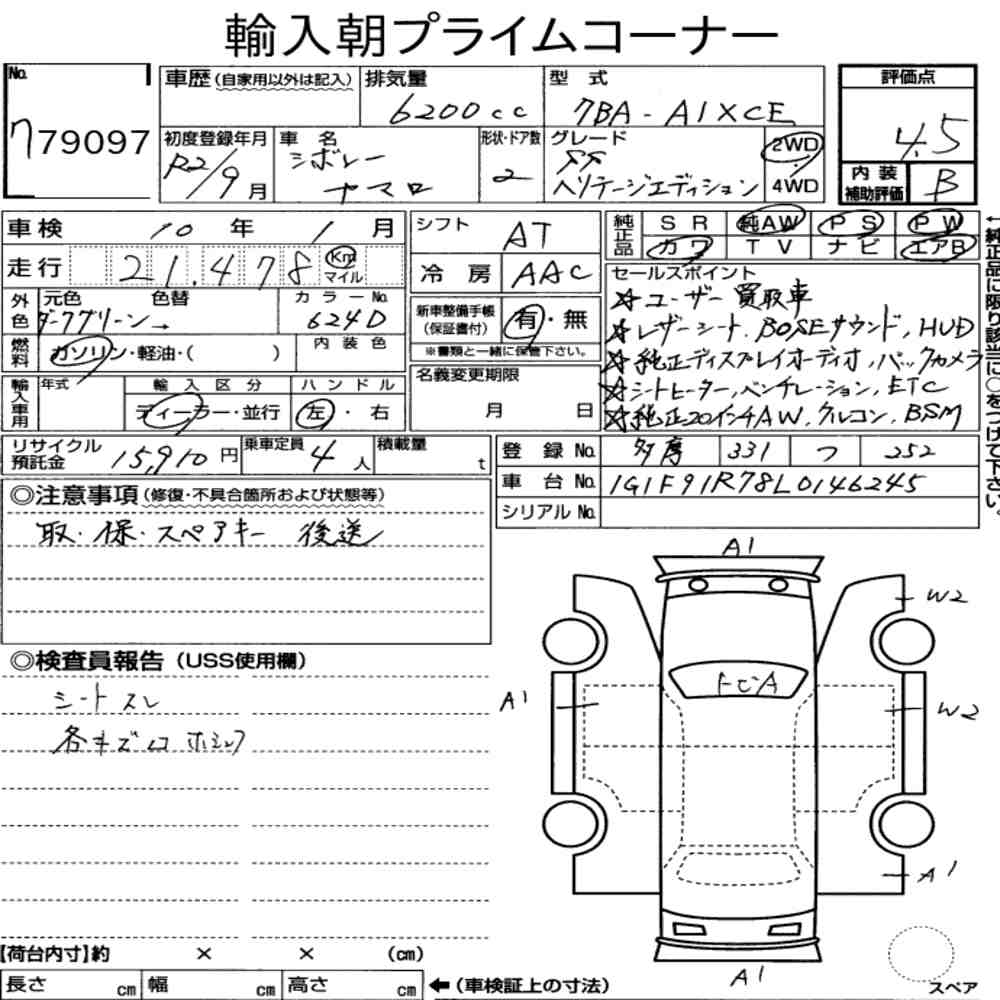 輸入朝プライムコーナー
No. 779097
車歴(自家用以外は記入)
排気量 6200cc
型式 7BA-A1XCE
評価点 4.5
内装補助評価 B
初度登録年月 R2/9月
車名 シボレー カマロ
形状・ドア数 2
グレード SS ヘリテージエディション
2WD・4WD
車検 10年 1月
走行 21,478 Km マイル
外色 元色 ダークグリーン→ 色替
カラーNo. 624D
燃料 ガソリン・軽油・( )
内装色
輸入車用 年式
輸入区分 ディーラー・並行
ハンドル 左・右
シフト AT
冷房 AAC
新車整備手帳(保証書付) 有・無
※書類と一緒に保管下さい。
名義変更期限 月 日
純正品 SR 純AW PS PW
カワ TV ナビ エアB
←純正品に限り該当に○をつけて下さい。
セールスポイント
☆ユーザー買取車
☆レザーシート, BOSEサウンド, HUD
☆純正ディスプレイオーディオ, バックカメラ
☆シートヒーター, ベンチレーション, ETC
☆純正20インチAW, クルコン, BSM
リサイクル預託金 15,910円
乗車定員 4人
積載量 t
登録No. 多摩 331 つ 252
車台No. 1G1F91R78L0146245
シリアルNo.
◎注意事項(修復・不具合箇所および状態等)
取・保・スペアキー 後送
◎検査員報告(USS使用欄)
シートスレ
各キズ凹
A1
W2
A1
W2
A1
A1
スペア
【荷台内寸】約 × × (cm)
長さ cm 幅 cm 高さ cm ←(車検証上の寸法)